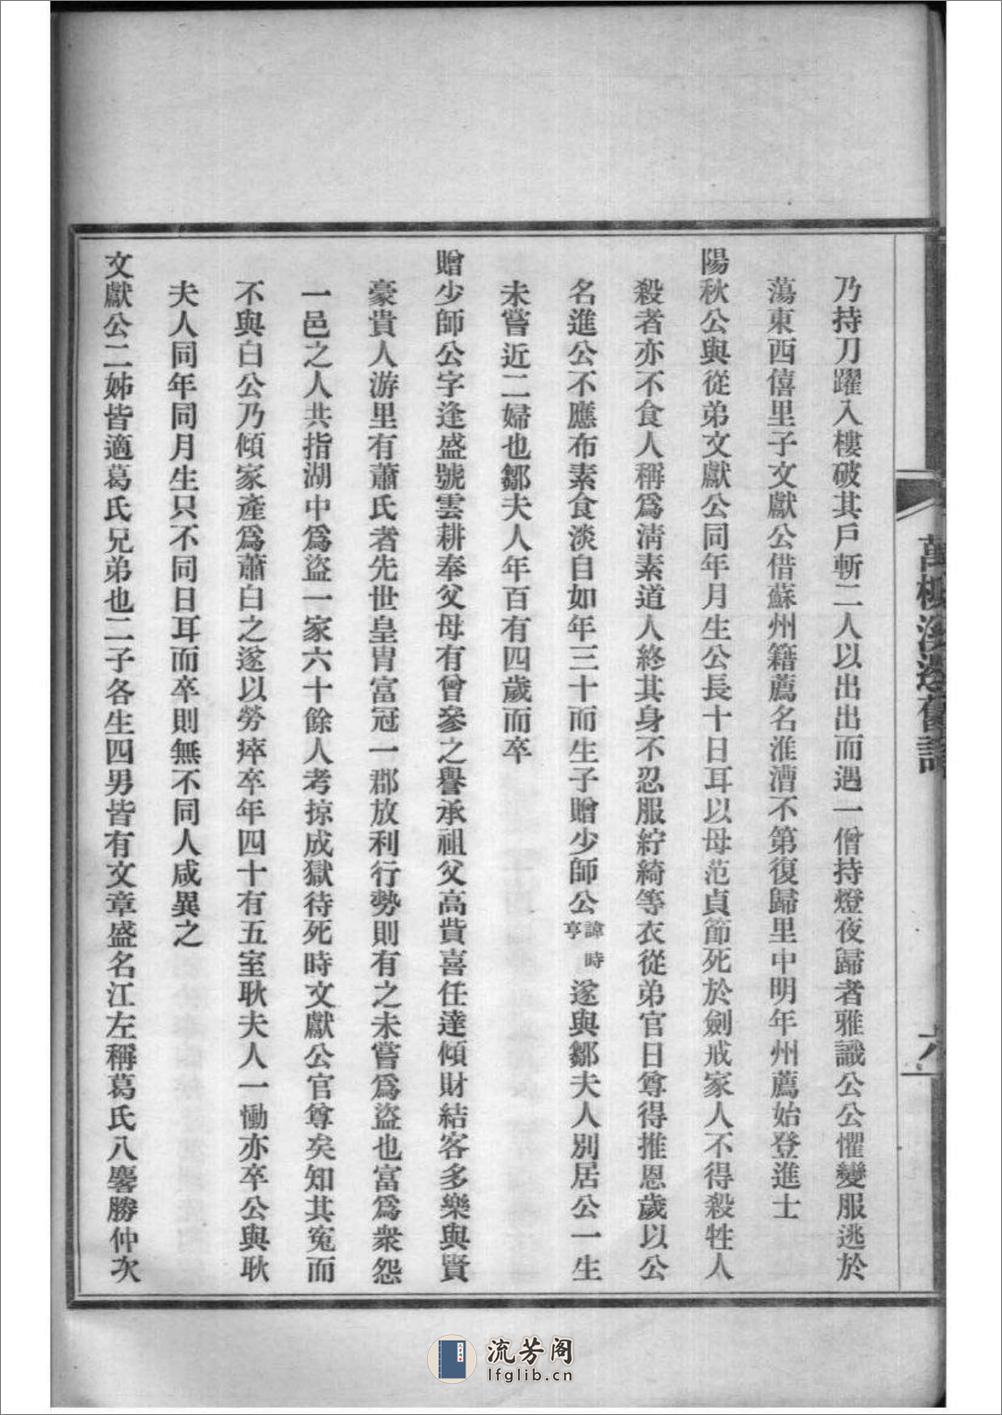 萬柳溪邊舊話
六
乃持刀躍入樓破其戶斬二人以出出而遇一僧持燈夜歸者雅識公公懼變服逃於
蕩東西僖里子文獻公借蘇州籍薦名淮漕不第復歸里中明年州薦始登進士
陽秋公與從弟文獻公同年月生公長十日耳以母范貞節死於劍戒家人不得殺牲人
殺者亦不食人稱爲淸素道人終其身不忍服紵綺等衣從弟官日尊得推恩歲以公
名進公不應布素食淡自如年三十而生子贈少師公諱時亨遂與鄒夫人別居公一生
未嘗近二婦也鄒夫人年百有四歲而卒
贈少師公字逢盛號雲耕奉父母有曾參之譽承祖父高貲喜任達傾財結客多樂與賢
豪貴人游里有蕭氏者先世皇冑富冠一郡放利行勢則有之未嘗爲盜也富爲衆怨
一邑之人共指湖中爲盜一家六十餘人考掠成獄待死時文獻公官尊矣知其冤而
不與白公乃傾家產爲蕭白之遂以勞瘁卒年四十有五室耿夫人一慟亦卒公與耿
夫人同年同月生只不同日耳而卒則無不同人咸異之
文獻公二姊皆適葛氏兄弟也二子各生四男皆有文章盛名江左稱葛氏八麐勝仲次
流芳阁
lfglib.cn